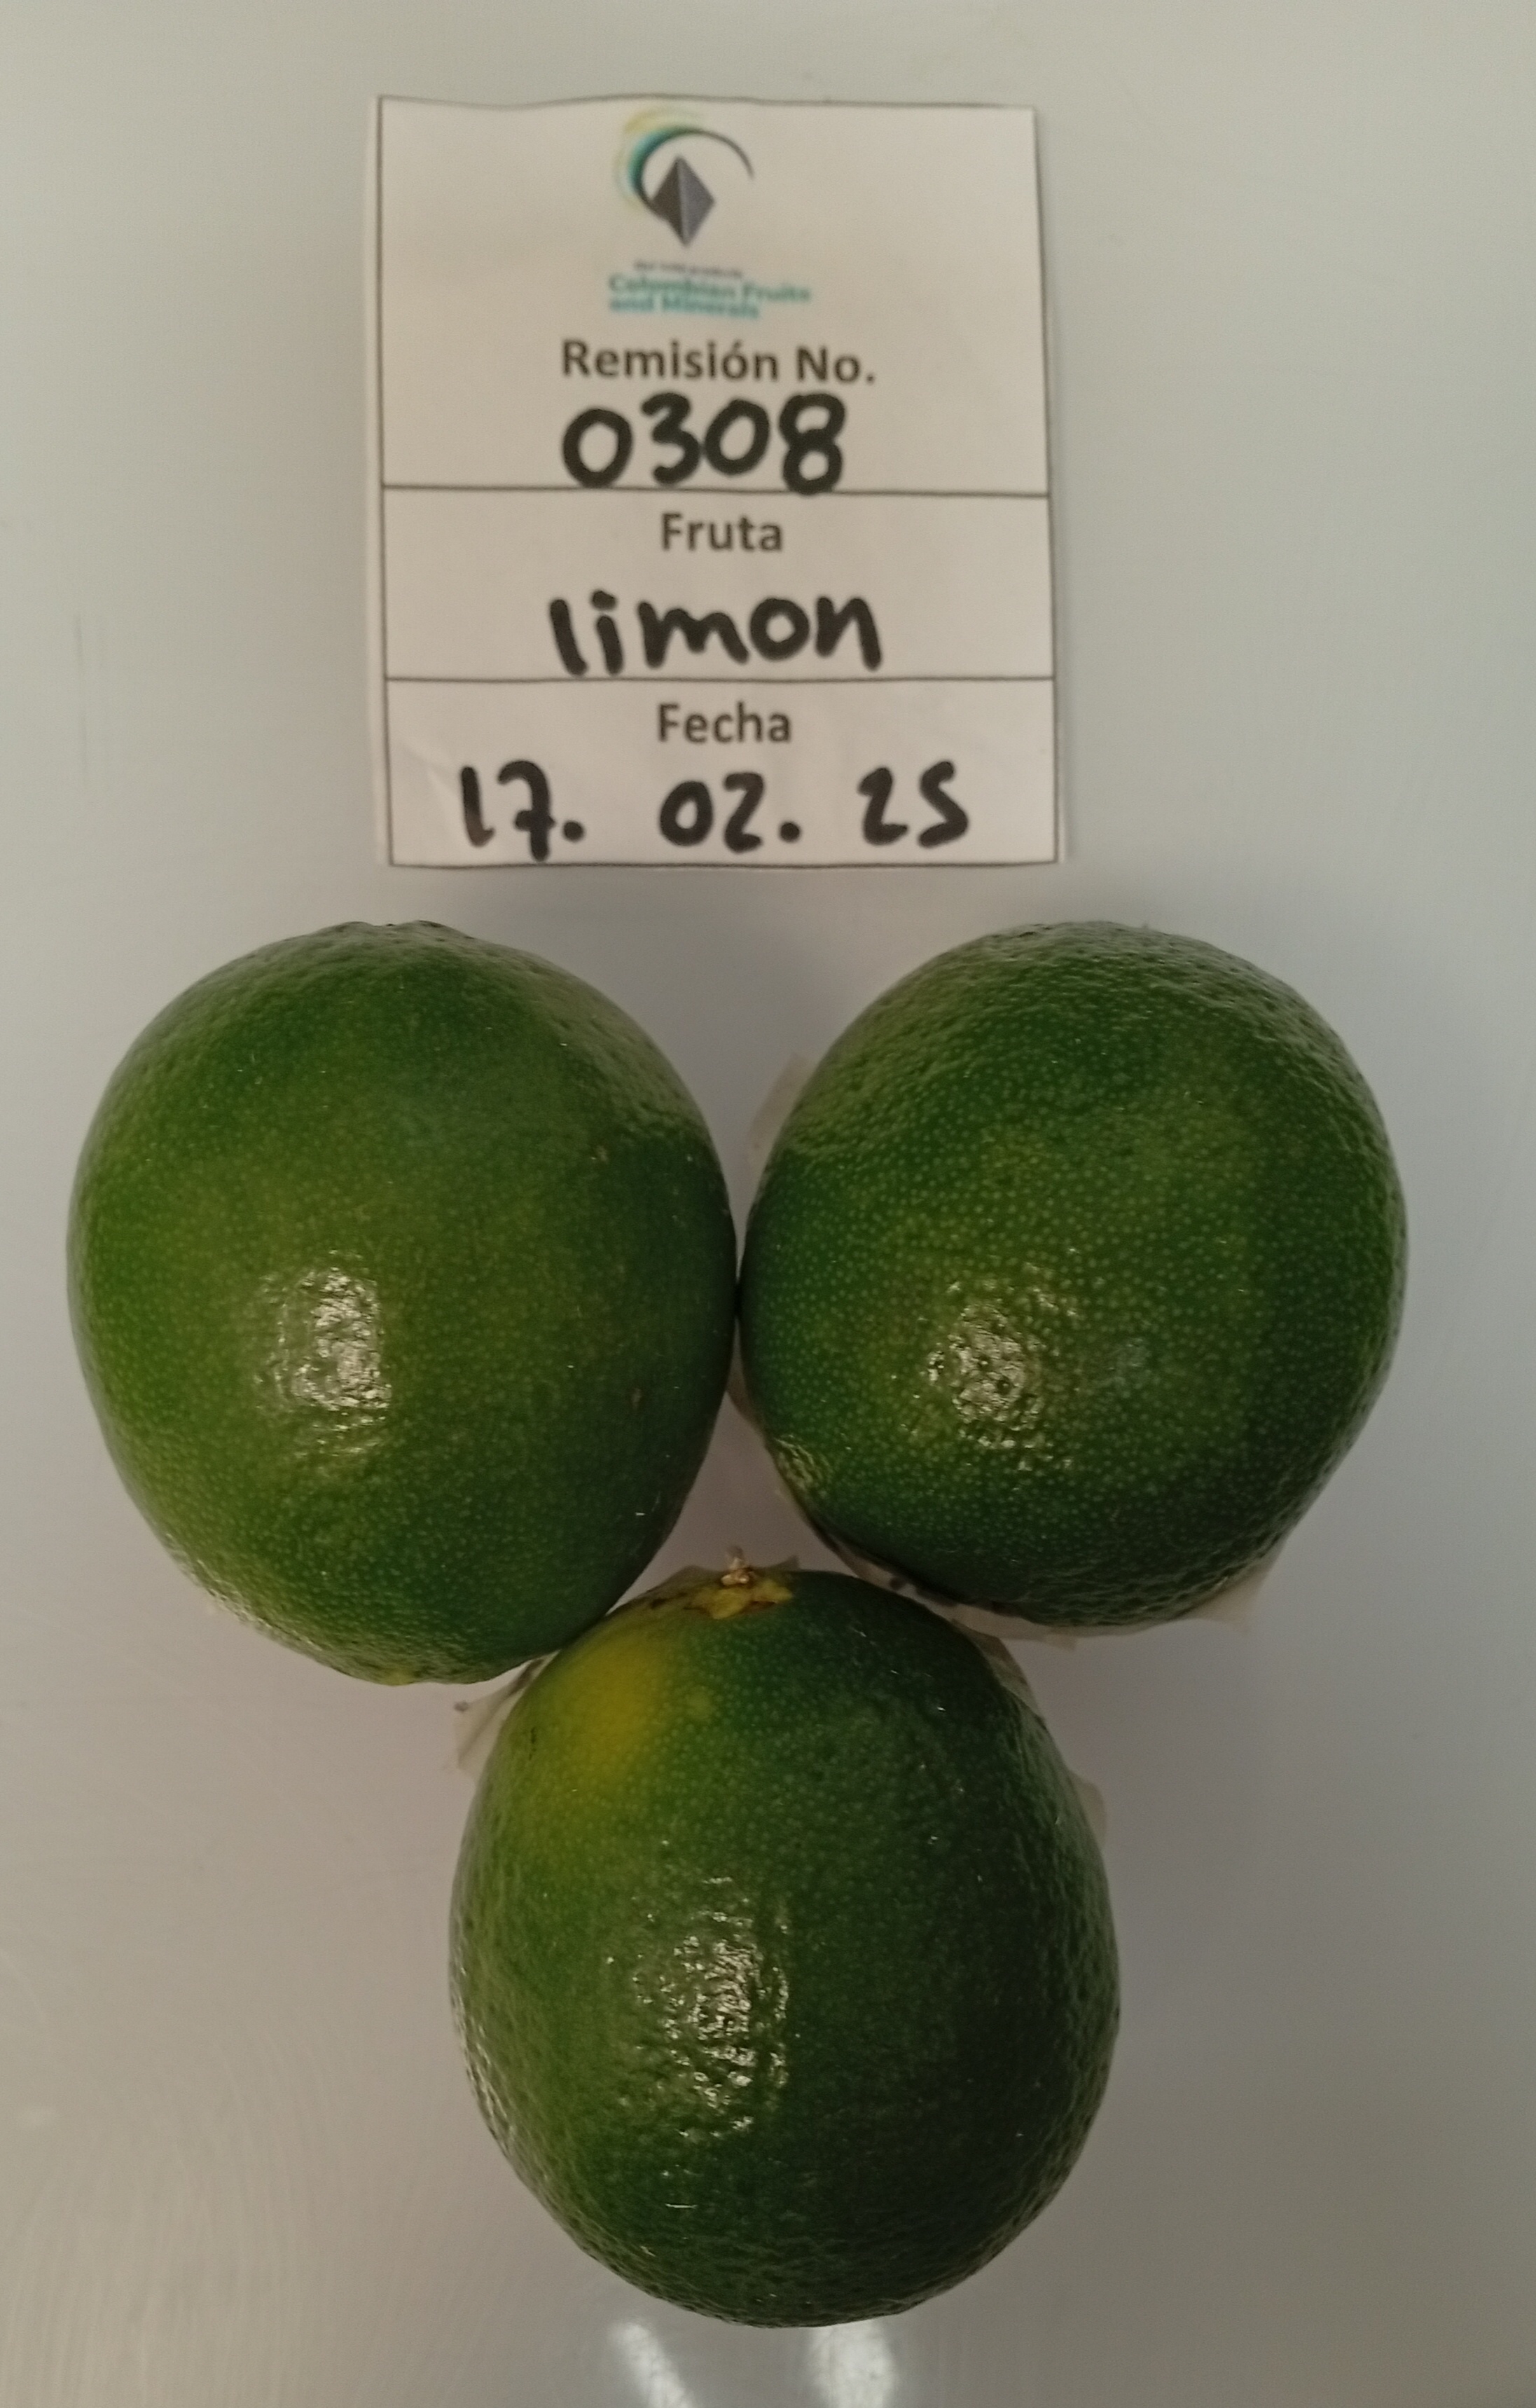 Colombian Fruits
and Minerals
Remisión No.
0308
Fruta
limon
Fecha
17. 02. 25